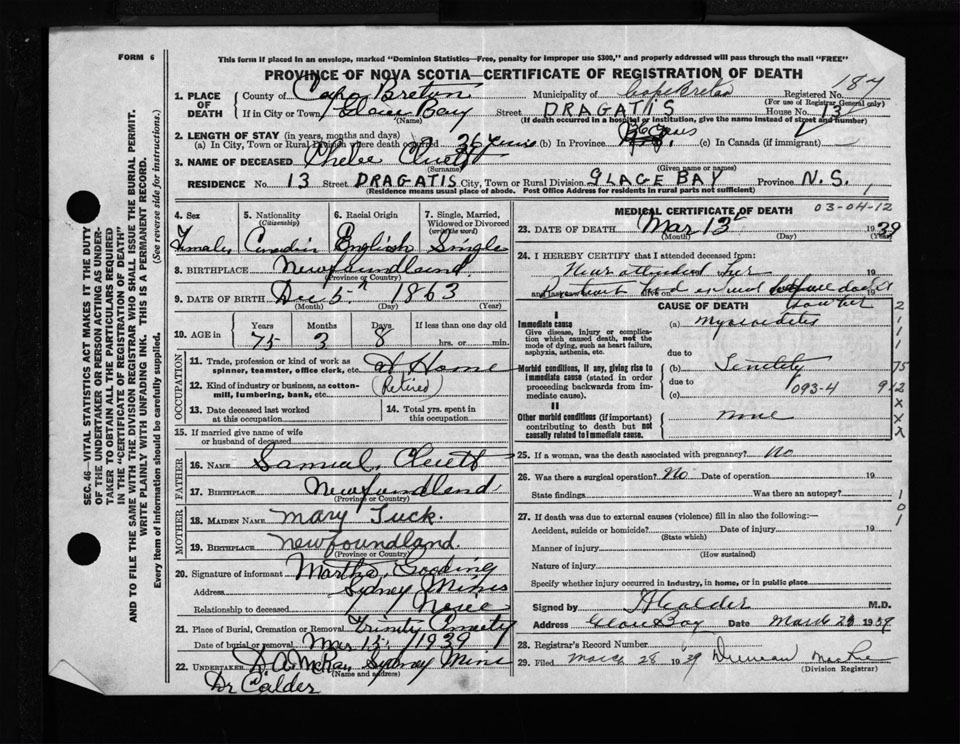 FORM 6
This form if placed in an envelope, marked "Dominion Statistics—Free, penalty for improper use $300," and properly addressed will pass through the mail "FREE"
PROVINCE OF NOVA SCOTIA—CERTIFICATE OF REGISTRATION OF DEATH
187
1. PLACE OF DEATH County of Cape Breton Municipality of Cape Breton Registered No.
(For use of Registrar General only)
If in City or Town Glace Bay Street DRAGATIS House No. 13
(Name) (If death occurred in a hospital or institution, give the name instead of street and number)
2. LENGTH OF STAY (in years, months and days)
(a) In City, Town or Rural Division where death occurred 36 years (b) In Province 36 years (c) In Canada (if immigrant) —
3. NAME OF DECEASED Phebe Cluett
(Surname) (Given name or names)
RESIDENCE No. 13 Street DRAGATIS City, Town or Rural Division GLACE BAY Province N.S.
(Residence means usual place of abode. Post Office Address for residents in rural parts not sufficient)
SEC. 46—VITAL STATISTICS ACT MAKES IT THE DUTY
OF THE UNDERTAKER OR PERSON ACTING AS UNDER-
TAKER TO OBTAIN ALL THE PARTICULARS REQUIRED
IN THE "CERTIFICATE OF REGISTRATION OF DEATH"
AND TO FILE THE SAME WITH THE DIVISION REGISTRAR WHO SHALL ISSUE THE BURIAL PERMIT.
WRITE PLAINLY WITH UNFADING INK. THIS IS A PERMANENT RECORD.
Every item of Information should be carefully supplied. (See reverse side for instructions.)
4. Sex 5. Nationality (Citizenship) 6. Racial Origin 7. Single, Married, Widowed or Divorced (write the word)
Female English Single
8. BIRTHPLACE Newfoundland
(Province or Country)
9. DATE OF BIRTH Dec 5 1863
(Month) (Day) (Year)
10. AGE in Years Months Days If less than one day old
75 3 8 hrs. or min.
OCCUPATION
11. Trade, profession or kind of work as spinner, teamster, office clerk, etc. At Home
12. Kind of industry or business, as cotton-mill, lumbering, bank, etc. (Retired)
13. Date deceased last worked at this occupation 14. Total yrs. spent in this occupation
15. If married give name of wife or husband of deceased
FATHER
16. NAME Samual Cluett
17. BIRTHPLACE Newfundlend
(Province or Country)
MOTHER
18. MAIDEN NAME Mary Tuck.
19. BIRTHPLACE Newfoundland.
(Province or Country)
20. Signature of informant Martha Gosling
Address Sydney Mines
Relationship to deceased Neice
21. Place of Burial, Cremation or Removal Trinity
Date of burial or removal Mar 15, 1939
22. UNDERTAKER D A McKay Sydney Mine
(Name and address)
Dr Calder
MEDICAL CERTIFICATE OF DEATH 03-04-12
23. DATE OF DEATH Mar 13 1939
(Month) (Day) (Year)
24. I HEREBY CERTIFY that I attended deceased from:
Never attended her 19
19
CAUSE OF DEATH
I
Immediate cause
Give disease, injury or complication which caused death, not the mode of dying, such as heart failure, asphyxia, asthenia, etc.
(a) Myocarditis
due to
Morbid conditions, if any, giving rise to immediate cause (stated in order proceeding backwards from immediate cause).
(b) Senility 75
due to 093-4 9-2
(c)
II
Other morbid conditions (if important) contributing to death but not causally related to immediate cause.
none
2
1
1
1
X
X
X
25. If a woman, was the death associated with pregnancy? No
26. Was there a surgical operation? No Date of operation 19
State findings Was there an autopsy?
1
0
1
27. If death was due to external causes (violence) fill in also the following:—
Accident, suicide or homicide? Date of injury 19
(State which)
Manner of injury
(How sustained)
Nature of injury
Specify whether injury occurred in industry, in home, or in public place
Signed by A Calder M.D.
Address Glace Bay Date March 1939
28. Registrar's Record Number
29. Filed March 28 1939
(Division Registrar)